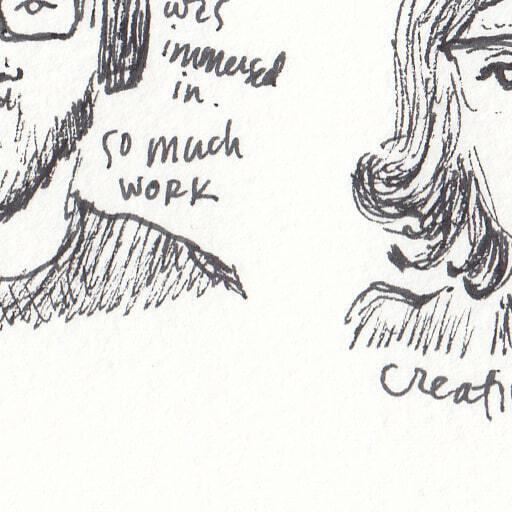 was
immersed
in.
so much
work
Creati